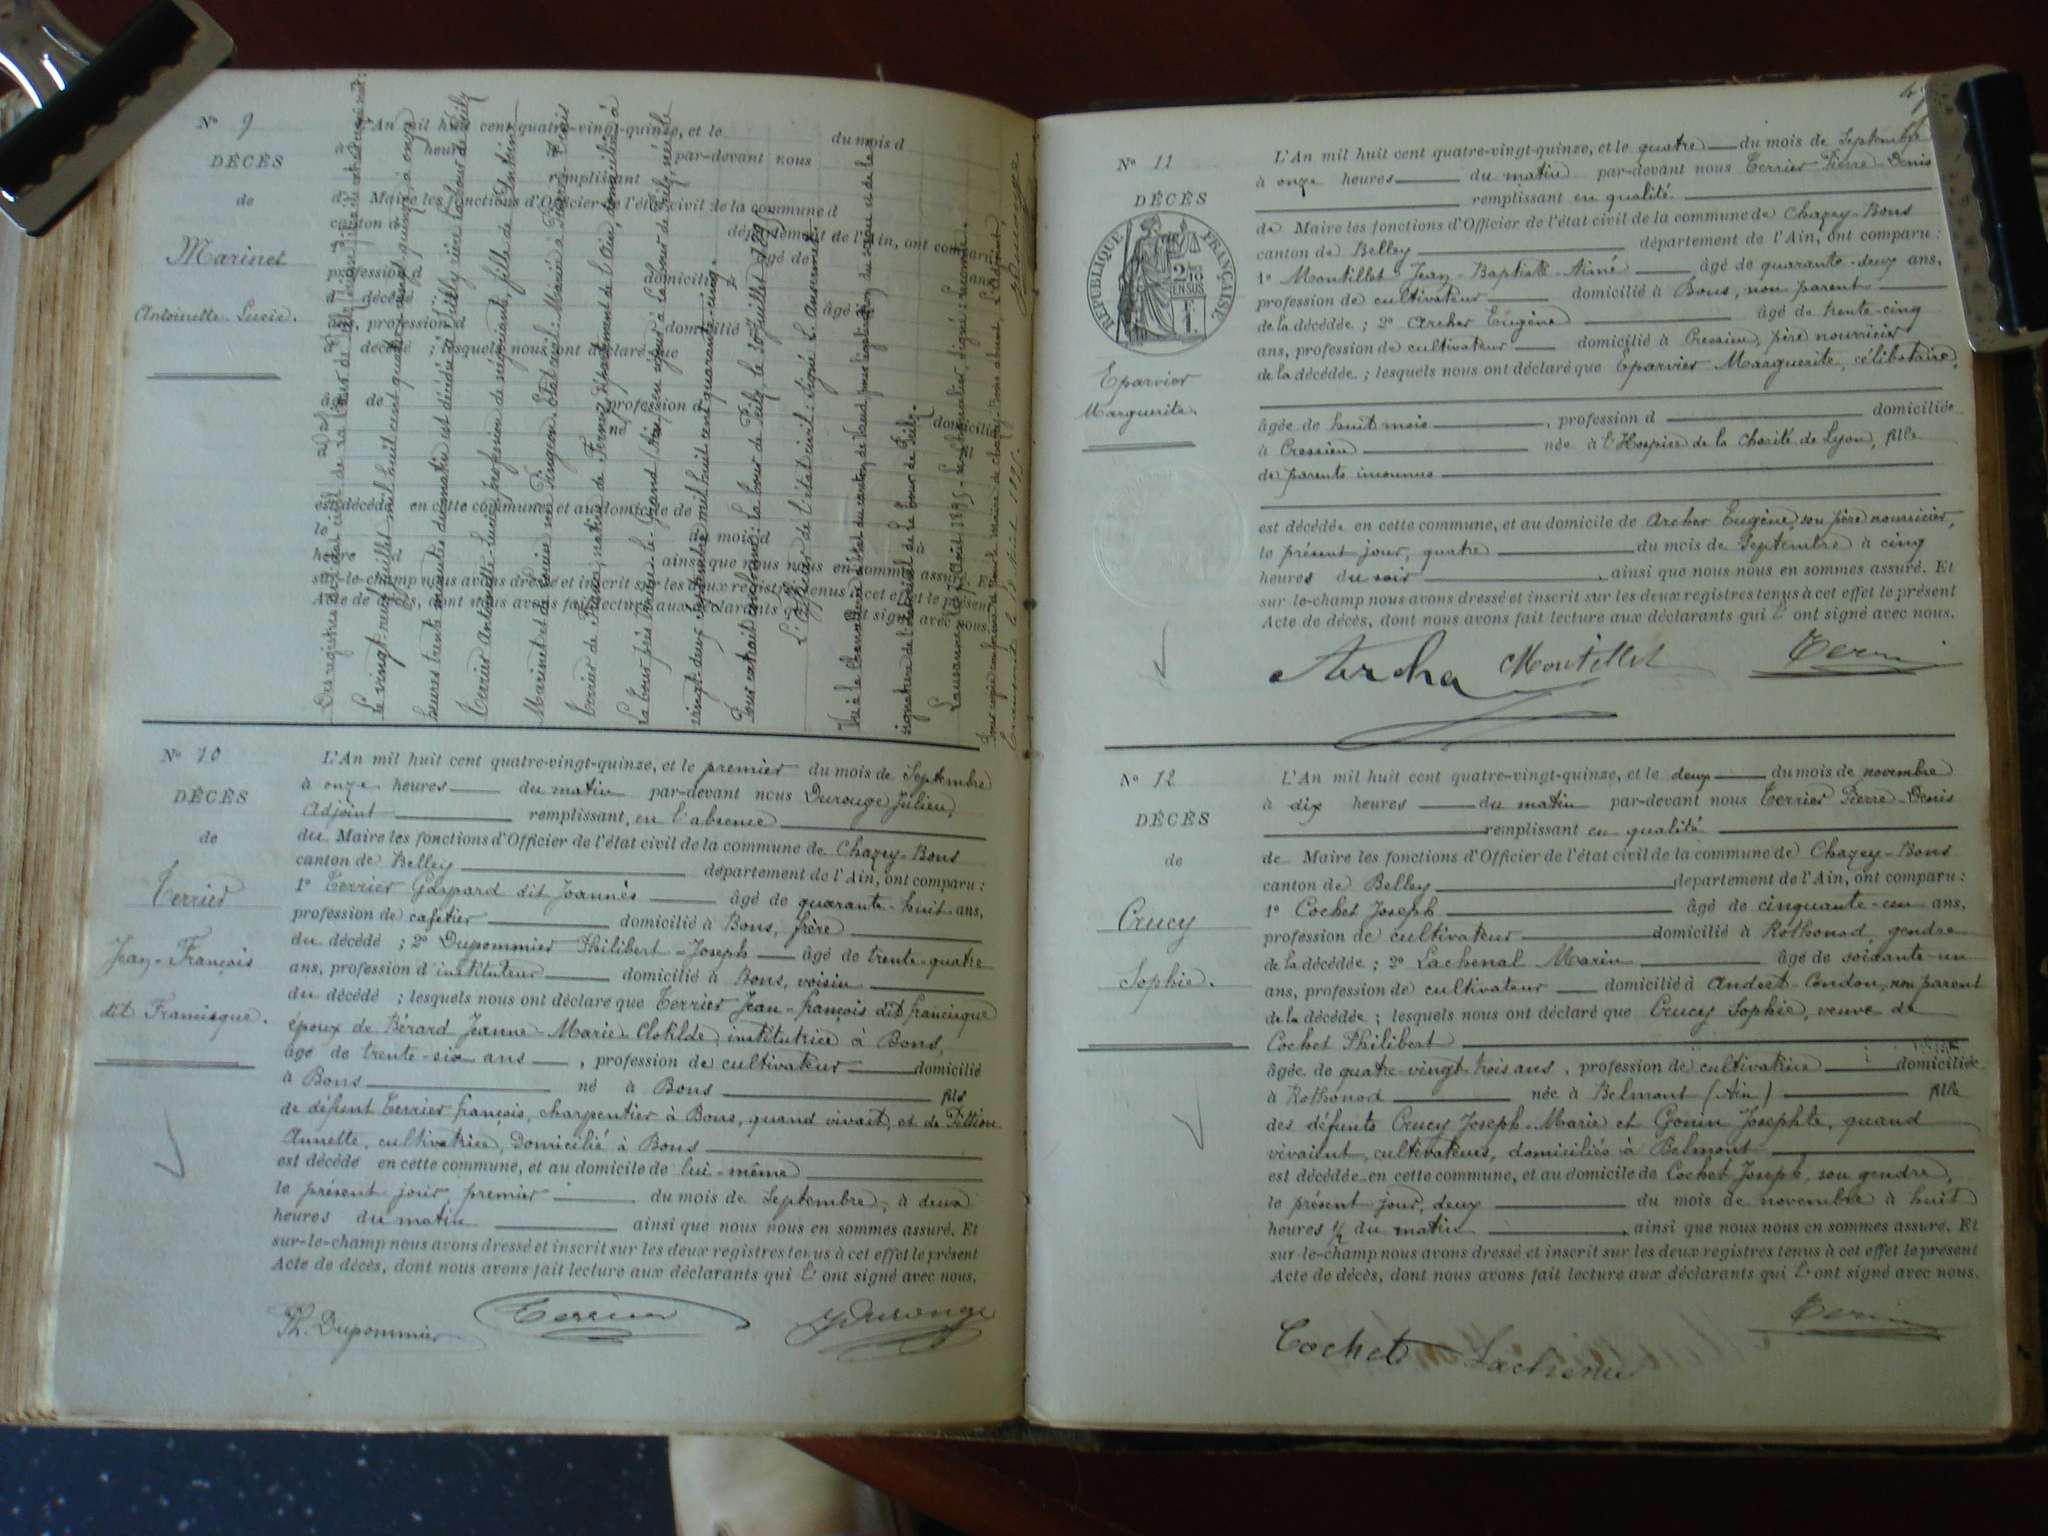 N° 9
DÉCÈS
de
Marinet
Antoinette-Lucie.
L'An mil huit cent quatre-vingt-quinze, et le du mois d
à heure par-devant nous
remplissant
d Maire les fonctions d'Officier de l'état civil de la commune d
canton d département de l'Ain, ont comparu
âgé de
profession d domicilié à ans
d décédé âgé de
ans, profession d domicilié
d décédé ; lesquels nous ont déclaré que
âgé de profession d domicilié
né
est décédé en cette commune, et au domicile de
le du mois d à
heure d ainsi que nous nous en sommes assuré. Et
sur-le-champ nous avons dressé et inscrit sur les deux registres tenus à cet effet le présent
Acte de décès, dont nous avons fait lecture aux déclarants signé avec nous.
Le vingt-neuf juillet mil huit cent quatre-vingt quinze, à onze
heures trente minutes du matin est décédée à
Terrier Antoinette-Lucie, profession de négociante, fille de Antoine
Marinet et de Louise née Pingeon. Etat civil: Mariée à Pierre Denis
Terrier de France, native de Ferney, département de l'Ain, domiciliée à
vingt-deux septembre mil huit cent quarante-cinq.
Pour extrait conforme: La Tour de Peilz, le 30 juillet 1895
L'officier de l'état civil: signé L. Ansermet
Vu à la Chancellerie d'Etat du canton de Vaud pour légalisation du sceau et de la
signature de l'état civil de la Tour de Peilz.
N° 10
DÉCÈS
de
Terrier
Jean-François
dit Francisque.
L'An mil huit cent quatre-vingt-quinze, et le premier du mois de Septembre
à onze heures du matin par-devant nous Durouge Julien,
Adjoint remplissant, en l'absence
du Maire les fonctions d'Officier de l'état civil de la commune de Chazey-Bons
canton de Belley département de l'Ain, ont comparu :
1° Terrier Gaspard dit Joannès âgé de quarante-huit ans,
profession de cafetier domicilié à Bons, frère
du décédé ; 2° Dupommier Philibert-Joseph âgé de trente-quatre
ans, profession d'instituteur domicilié à Bons, voisin
du décédé ; lesquels nous ont déclaré que Terrier Jean-françois dit francisque
époux de Bérard Jeanne-Marie-Clotilde, institutrice à Bons,
âgé de trente-six ans , profession de cultivateur domicilié
à Bons né à Bons fils
de défunt Terrier françois, charpentier à Bons, quand vivait, et de Pittion
Annette, cultivatrice, domicilié à Bons
est décédé en cette commune, et au domicile de lui-même
le présent jour, premier du mois de Septembre, à deux
heures du matin ainsi que nous nous en sommes assuré. Et
sur-le-champ nous avons dressé et inscrit sur les deux registres tenus à cet effet le présent
Acte de décès, dont nous avons fait lecture aux déclarants qui l' ont signé avec nous.
Ph. Dupommier Terrier J Durouge
N° 11
DÉCÈS
RÉPUBLIQUE FRANÇAISE
Eparvier
Marguerite.
L'An mil huit cent quatre-vingt-quinze, et le quatre du mois de Septembre
à onze heures du matin par-devant nous Terrier Pierre-Denis
remplissant en qualité
de Maire les fonctions d'Officier de l'état civil de la commune de Chazey-Bons
canton de Belley département de l'Ain, ont comparu :
1° Montillet Jean-Baptiste-Aimé âgé de quarante-deux ans,
profession de cultivateur domicilié à Bons, non parent
de la décédée ; 2° Archer Eugène âgé de trente-cinq
ans, profession de cultivateur domicilié à Cressieu, père nourricier
de la décédée ; lesquels nous ont déclaré que Eparvier Marguerite, célibataire,
âgée de huit mois , profession d domiciliée
à Cressieu née à l'Hospice de la Charité de Lyon, fille
de parents inconnus
est décédée en cette commune, et au domicile de Archer Eugène, son père nourricier,
le présent jour, quatre du mois de Septembre à cinq
heures du soir , ainsi que nous nous en sommes assuré. Et
sur-le-champ nous avons dressé et inscrit sur les deux registres tenus à cet effet le présent
Acte de décès, dont nous avons fait lecture aux déclarants qui l' ont signé avec nous.
Archa Montillet Terrier
N° 12
DÉCÈS
de
Crucy
Sophie.
L'An mil huit cent quatre-vingt-quinze, et le deux du mois de novembre
à dix heures du matin par-devant nous Terrier Pierre-Denis
remplissant en qualité
de Maire les fonctions d'Officier de l'état civil de la commune de Chazey-Bons
canton de Belley département de l'Ain, ont comparu :
1° Cochet Joseph âgé de cinquante-un ans,
profession de cultivateur domicilié à Rothonod, gendre
de la décédée ; 2° Lachenal Marin âgé de soixante-un
ans, profession de cultivateur domicilié à Andert-Condon, non parent
de la décédée ; lesquels nous ont déclaré que Crucy Sophie, veuve de
Cochet Philibert
âgée de quatre-vingt-trois ans , profession de cultivatrice domiciliée
à Rothonod née à Belmont (Ain) fille
des défunts Crucy Joseph-Marie et Gonin Josephte, quand
vivaient, cultivateurs, domiciliés à Belmont
est décédée en cette commune, et au domicile de Cochet Joseph, son gendre,
le présent jour, deux du mois de novembre à huit
heures ½ du matin , ainsi que nous nous en sommes assuré. Et
sur-le-champ nous avons dressé et inscrit sur les deux registres tenus à cet effet le présent
Acte de décès, dont nous avons fait lecture aux déclarants qui l' ont signé avec nous.
Cochet Lachenal Terrier